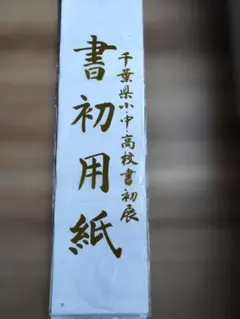 千葉県小・中・高校書初展
書初用紙